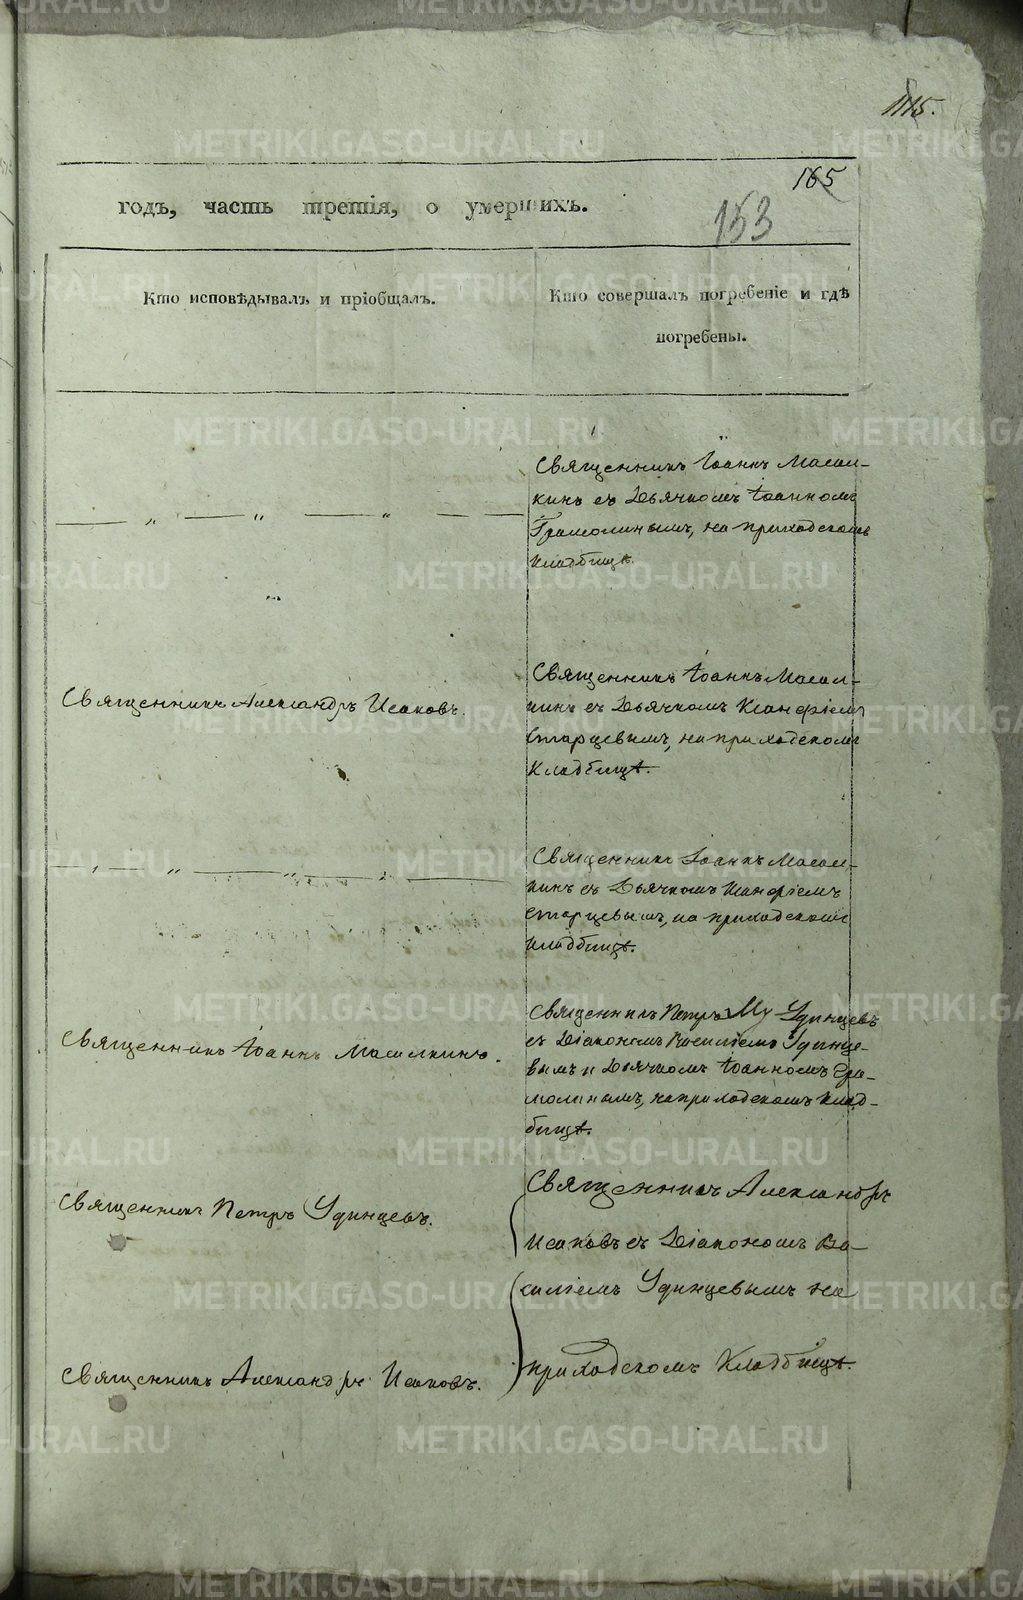 1115.
165
153
годъ, часть третія, о умершихъ.
Кто исповѣдывалъ и пріобщалъ.
Кто совершалъ погребеніе и гдѣ
погребены.
Священникъ Іоаннъ Масал-
кинъ съ Дьячкомъ Іоанномъ
на приходскомъ
кладбищѣ.
Священникъ Александръ Исаковъ.
Священникъ Іоаннъ Масал-
кинъ съ Дьячкомъ Ксанфіемъ
Старцевымъ, на приходскомъ
Кладбищѣ.
Священникъ Іоаннъ Масал-
кинъ съ Дьячкомъ
Старцевымъ, на приходскомъ
кладбищѣ.
Священникъ Іоаннъ Масалкинъ.
Священникъ Петръ Удинцевъ
съ Діакономъ Василіемъ Удинце-
вымъ и Дьячкомъ Іоанномъ Гра-
молинымъ, на приходскомъ клад-
бищѣ.
Священникъ Петръ Удинцевъ.
Священникъ Александръ Исаковъ.
Священникъ Александръ
Исаковъ съ Діакономъ Ва-
силіемъ Удинцевымъ на
приходскомъ Кладбищѣ.
METRIKI.GASO-URAL.RU